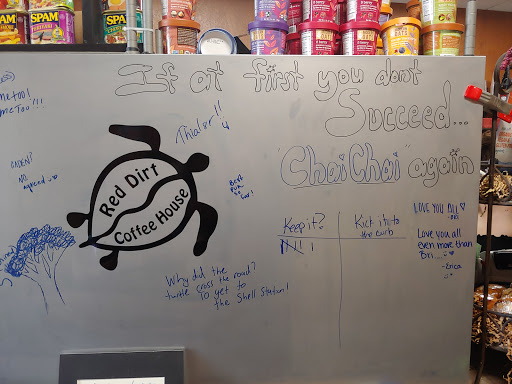 SPAM
SPAM
SPA
If at first you don't
Succeed...
"Chai Chai" again
me too!
me Too!!!
Thialer!!
Red Dirt
Coffee House
Best
Fun
Ever!
agreed
Why did the
turtle cross the road?
To get to
the Shell Station!
Keep it?
Kick it to
the curb
LOVE YOU ALL
Love you all
even more than
Bri...
-Erica